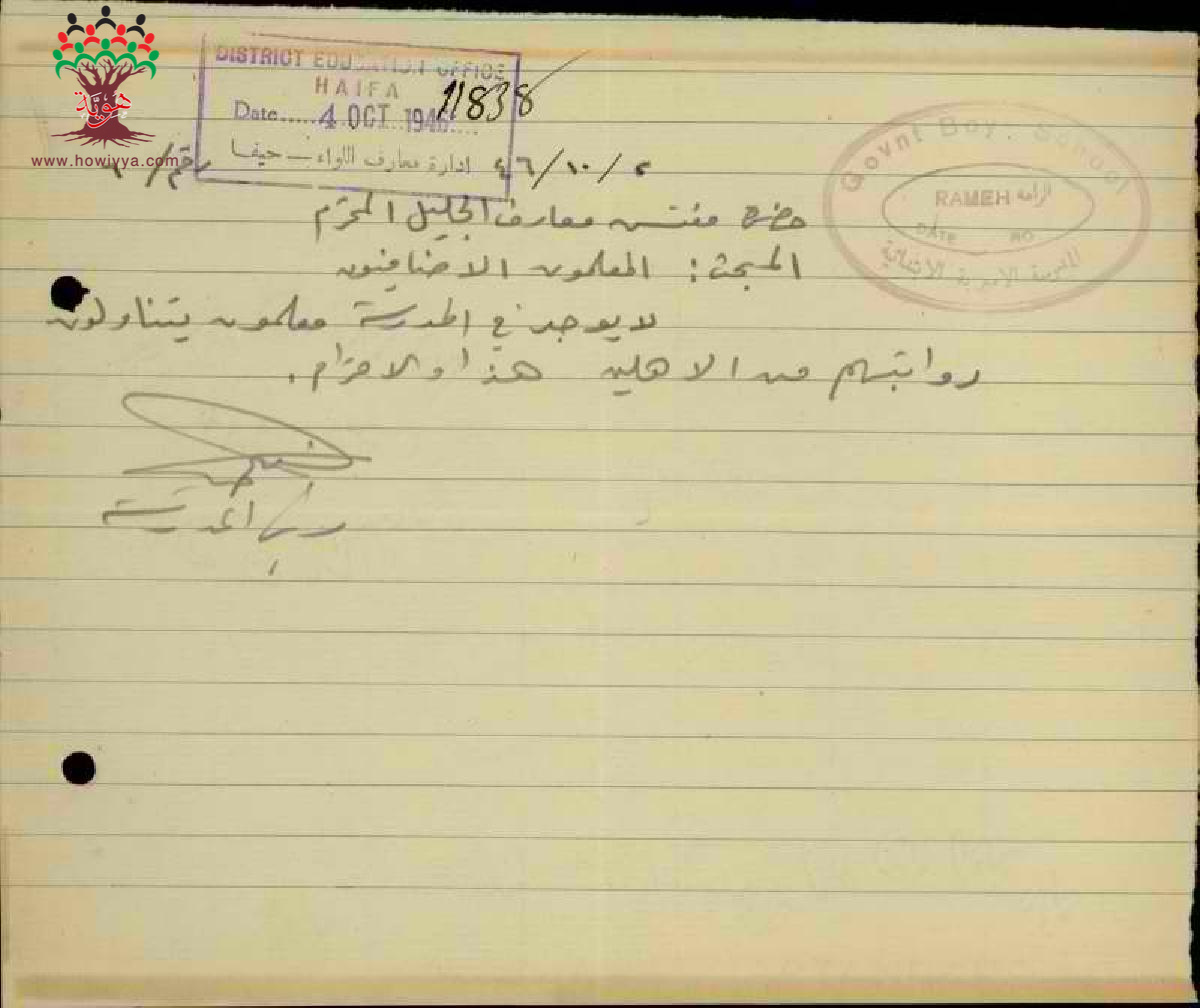 هوية
www.howiyya.com
DISTRICT EDUCATION OFFICE
HAIFA
11838
Date..... 4 OCT 1946.....
ادارة معارف اللواء — حيفا
Govnt Boy. School
RAMEH الرامة
DATE NO
المدرسة الاميرية الابتدائية
رقم/
٤٦/١٠/٢
حضرة مفتش معارف الجليل المحترم
المبحث: المعلمون الاضافيون
لا يوجد في المدرسة معلمون يتناولون
رواتبهم من الاهلين هذا والاحترام.
مدير المدرسة